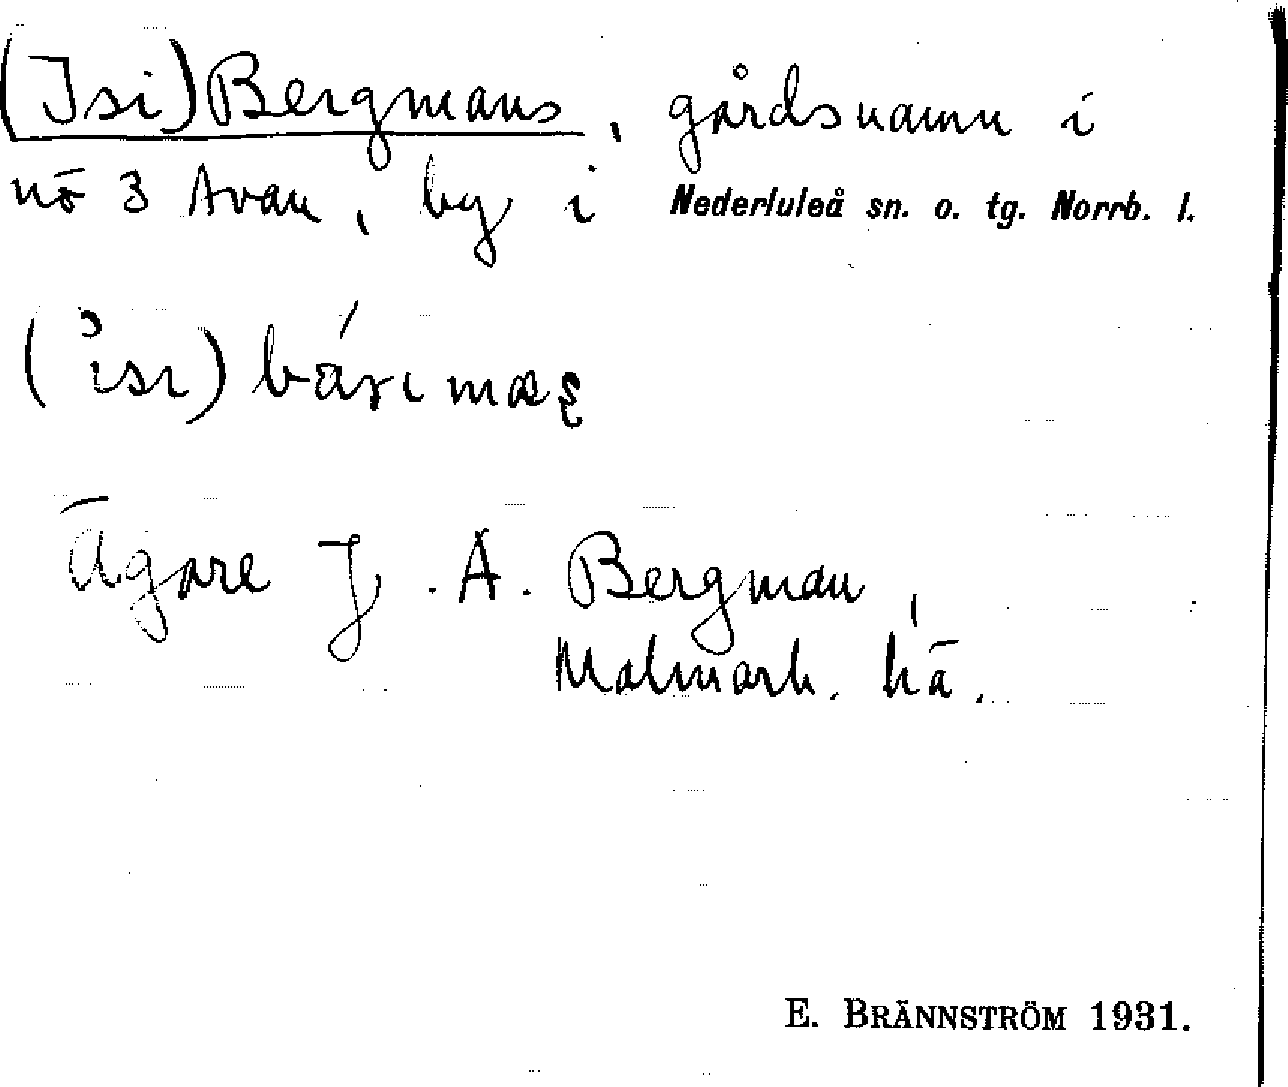 (Isi)Bergmans, gårdsnamn i
nō 3 Avan, by i Nederluleå sn. o. tg. Norrb. l.
Ägare J. A. Bergman,
Malmark. hā.
E. BRÄNNSTRÖM 1931.